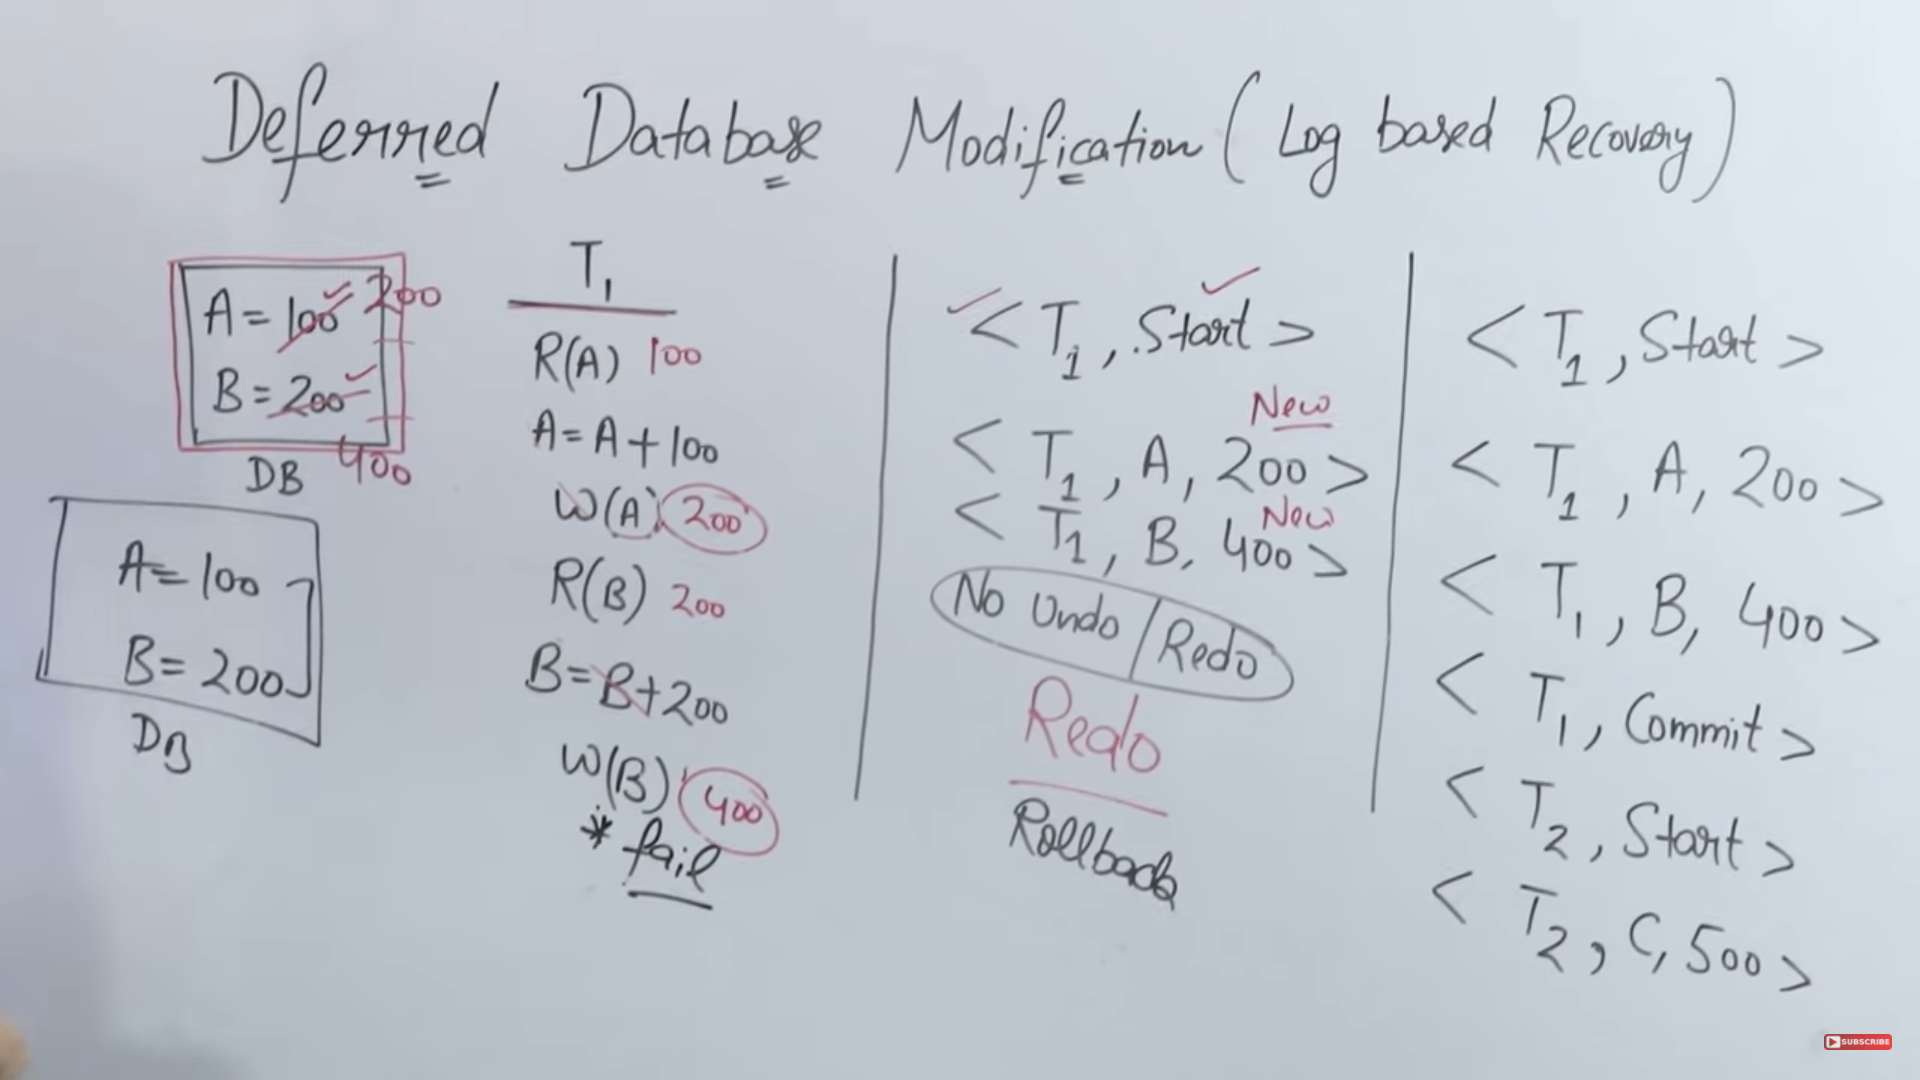 Deferred Database Modification (Log based Recovery)
A = 100 200
B = 200
400
DB
A = 100
B = 200
DB
T1
R(A) 100
A = A + 100
W(A) 200
R(B) 200
B = B + 200
W(B) 400
* fail
< T1, Start >
New
< T1, A, 200 >
New
< T1, B, 400 >
No Undo / Redo
Redo
Rollback
< T1, Start >
< T1, A, 200 >
< T1, B, 400 >
< T1, Commit >
< T2, Start >
< T2, C, 500 >
SUBSCRIBE